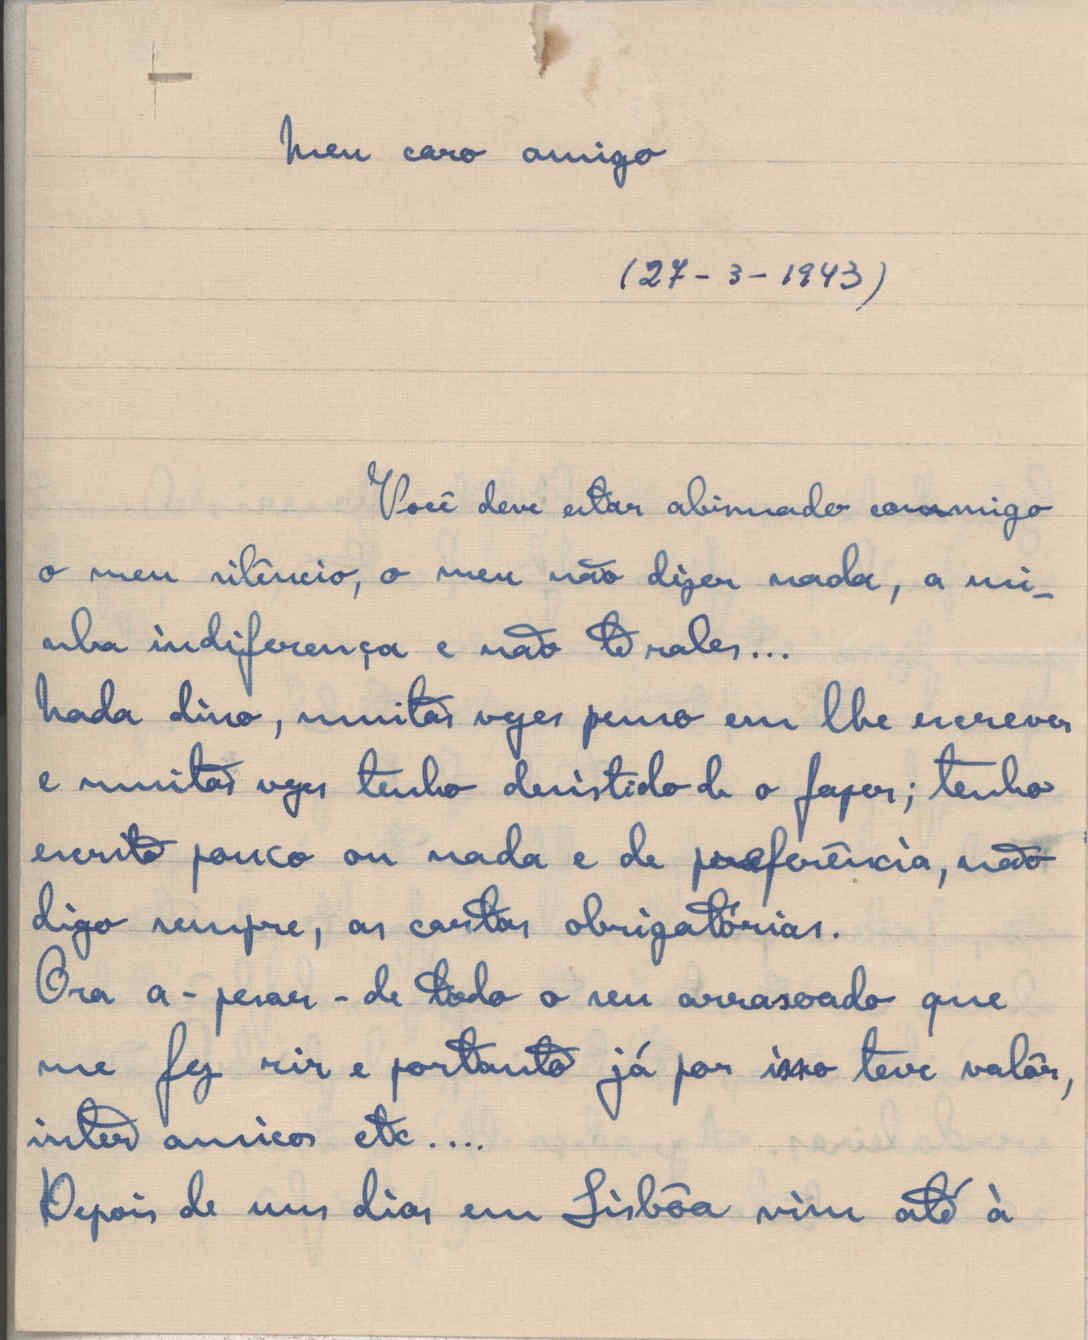 Meu caro amigo
(27-3-1943)
Você deve estar abismado commigo
o meu silêncio, o meu não dizer nada, a mi-
nha indiferença e não
Nada disso, muitas vezes penso em lhe escrever
e muitas vezes tenho desistido de o fazer; tenho
escrito pouco ou nada e de preferência, não
digo sempre, as cartas obrigatórias.
Ora a-pesar-de todo o seu arrasoado que
me fez rir e portanto já por isso teve valôr,
inter amicos etc....
Depois de uns dias em Lisbôa vim até à